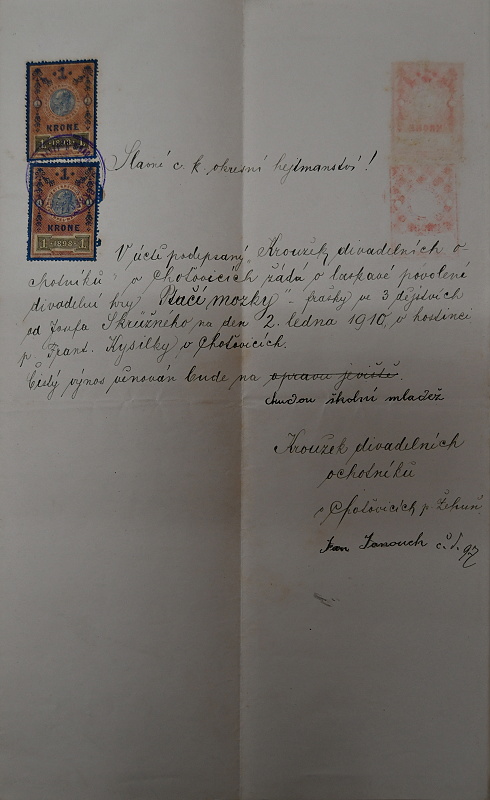 1
KRONE
1 1898 1
1
KRONE
1 1898 1
Slavné c. k. okresní hejtmanství!
V úctě podepsaný „Kroužek divadelních o-
chotníků" v Choťovicích žádá o laskavé povolení
divadelní hry „Ptačí mozky" - frašky ve 3 dějstvích
od Josefa Skružného na den 2. ledna 1910, v hostinci
p. Frant. Kysilky, v Choťovicích.
Čistý výnos věnován bude na opravu jeviště.
chudou školní mládež
Kroužek divadelních
ochotníků
v Choťovicích p. Žehuň
Jan Janouch č. d. 97